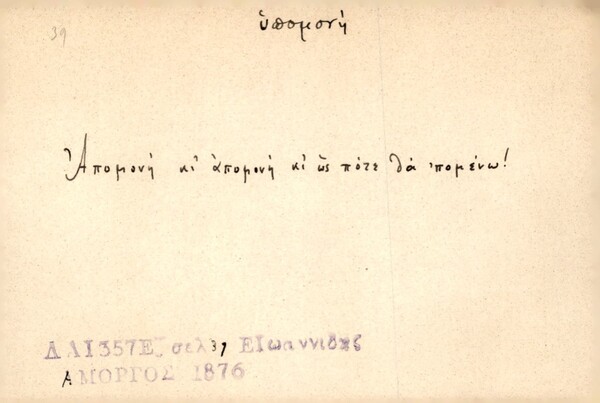 39
ὑπομονή
Ἀπομονή κι ἀπομονή κι ὣς πότε θά 'πομένω!
ΔΛΙ357Ε σελ 39 ΕΙωαννιδης
ΑΜΟΡΓΟΣ 1876